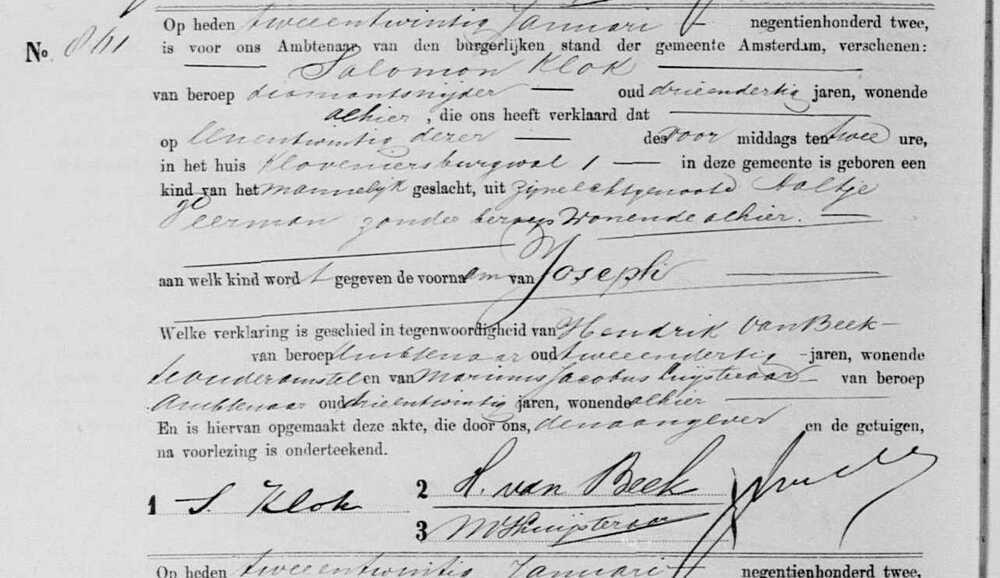 Op heden tweeentwintig Januari negentienhonderd twee,
No. 841 is voor ons Ambtenaar van den burgerlijken stand der gemeente Amsterdam, verschenen:
Salomon Klok
van beroep diamantsnijder oud drieendertig jaren, wonende
alhier, die ons heeft verklaard dat
op eenentwintig dezer des voor middags ten twee ure,
in het huis Kloveniersburgwal 1 in deze gemeente is geboren een
kind van het mannelijk geslacht, uit zijne echtgenoote Aaltje
Peerman zonder beroep wonende alhier.
aan welk kind wordt gegeven de voornaam van Joseph
Welke verklaring is geschied in tegenwoordigheid van Hendrik van Beek
van beroep Ambtenaar oud tweeendertig jaren, wonende
te Ouderamstel en van Marinus Jacobus Kuijsteraar van beroep
Ambtenaar oud drieentwintig jaren, wonende alhier
En is hiervan opgemaakt deze akte, die door ons, den aangever en de getuigen,
na voorlezing is onderteekend.
1 S. Klok
2 H. van Beek
3 MJKuijsteraar
Op heden tweeentwintig Januari negentienhonderd twee,